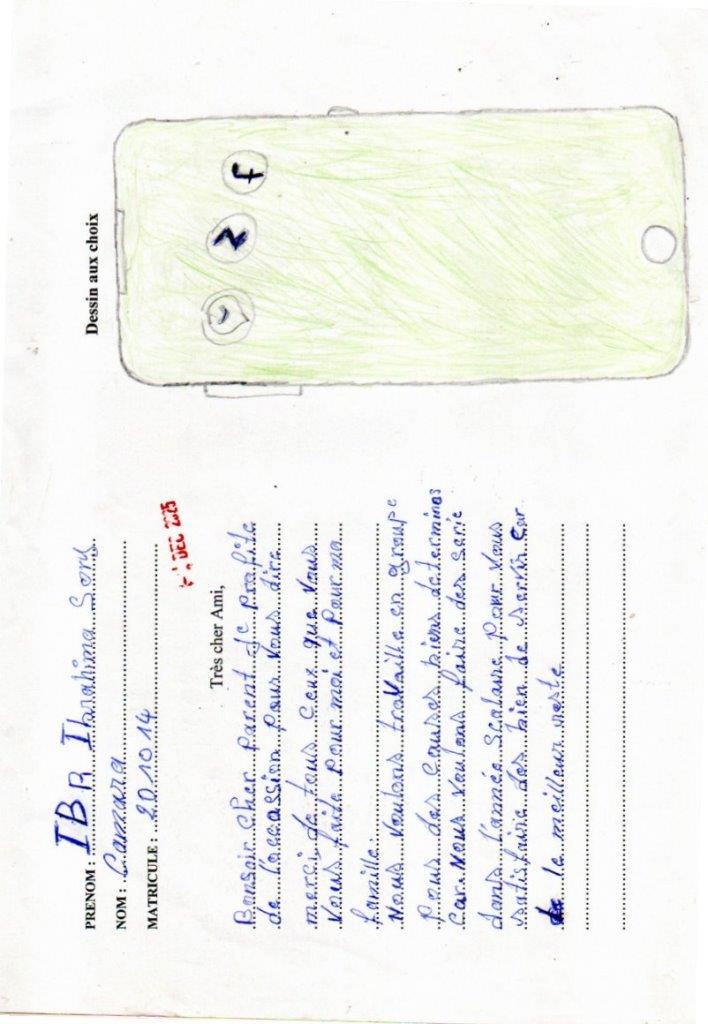 PRENOM : IBR Ibrahima Sory
NOM : Camara
MATRICULE : 201014
DEC 2025
Très cher Ami,
Bonsoir cher parent Je profite
de l'occassion pour vous dire
merci de tous ceux que vous
vous faite pour moi et pour ma
famille.
Nous voulons travaille en groupe
pous des causes biens determines
car nous voulons faire des serie
dans l'année scolaire pour vous
satisfaire des bien de servir car
le meilleur reste
Dessin aux choix
f